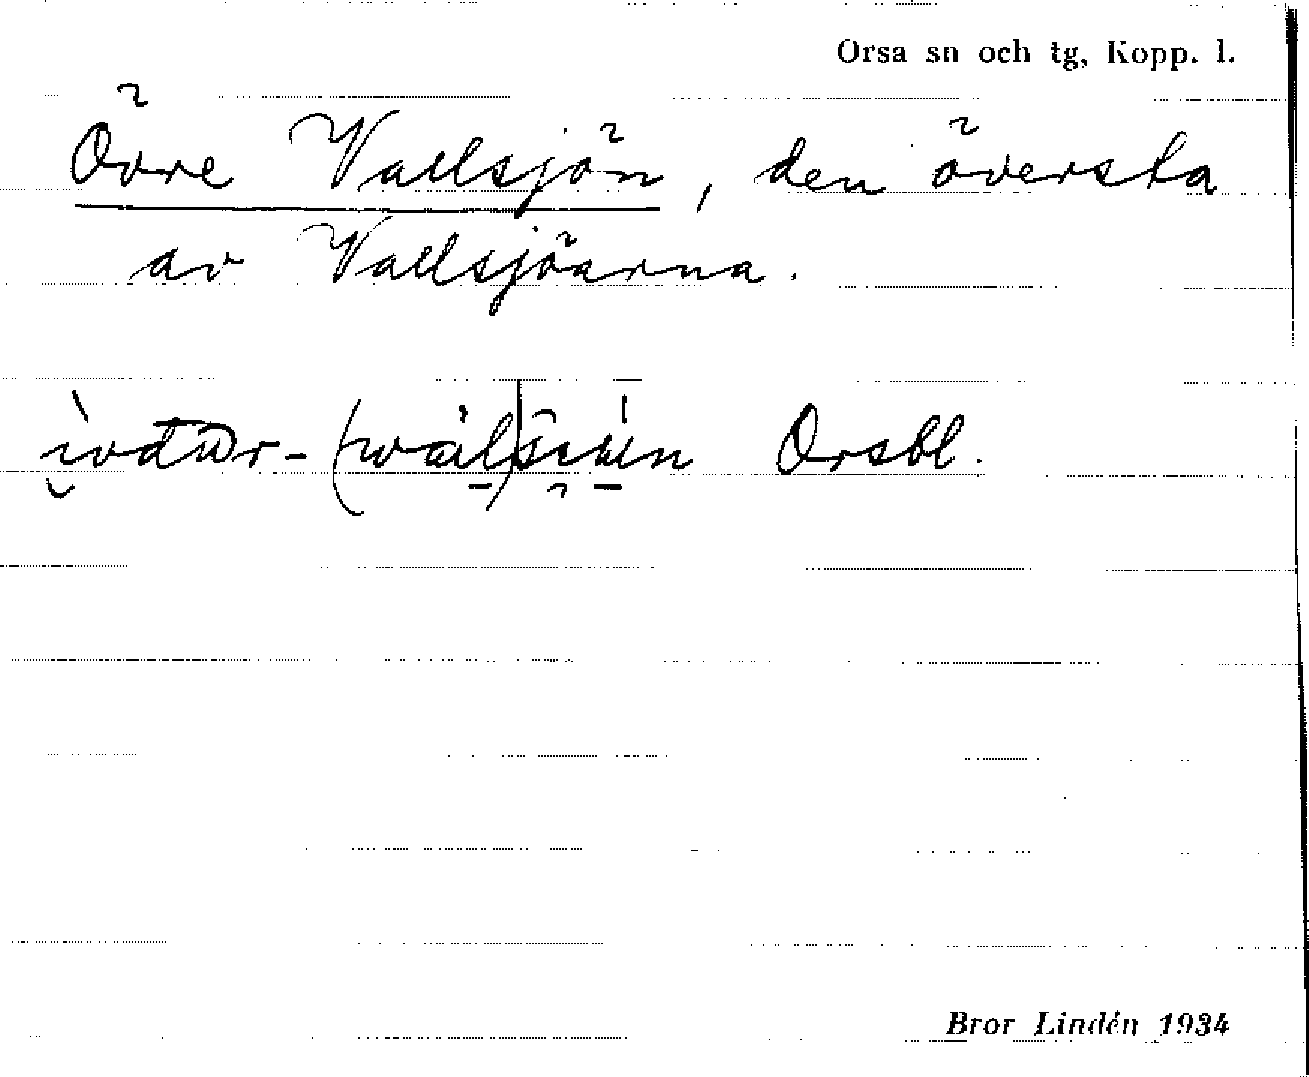 Orsa sn och tg, Kopp. l.
Övre Vallsjön, den översta
av Vallsjöarna.
Orsbl.
Bror Lindén 1934